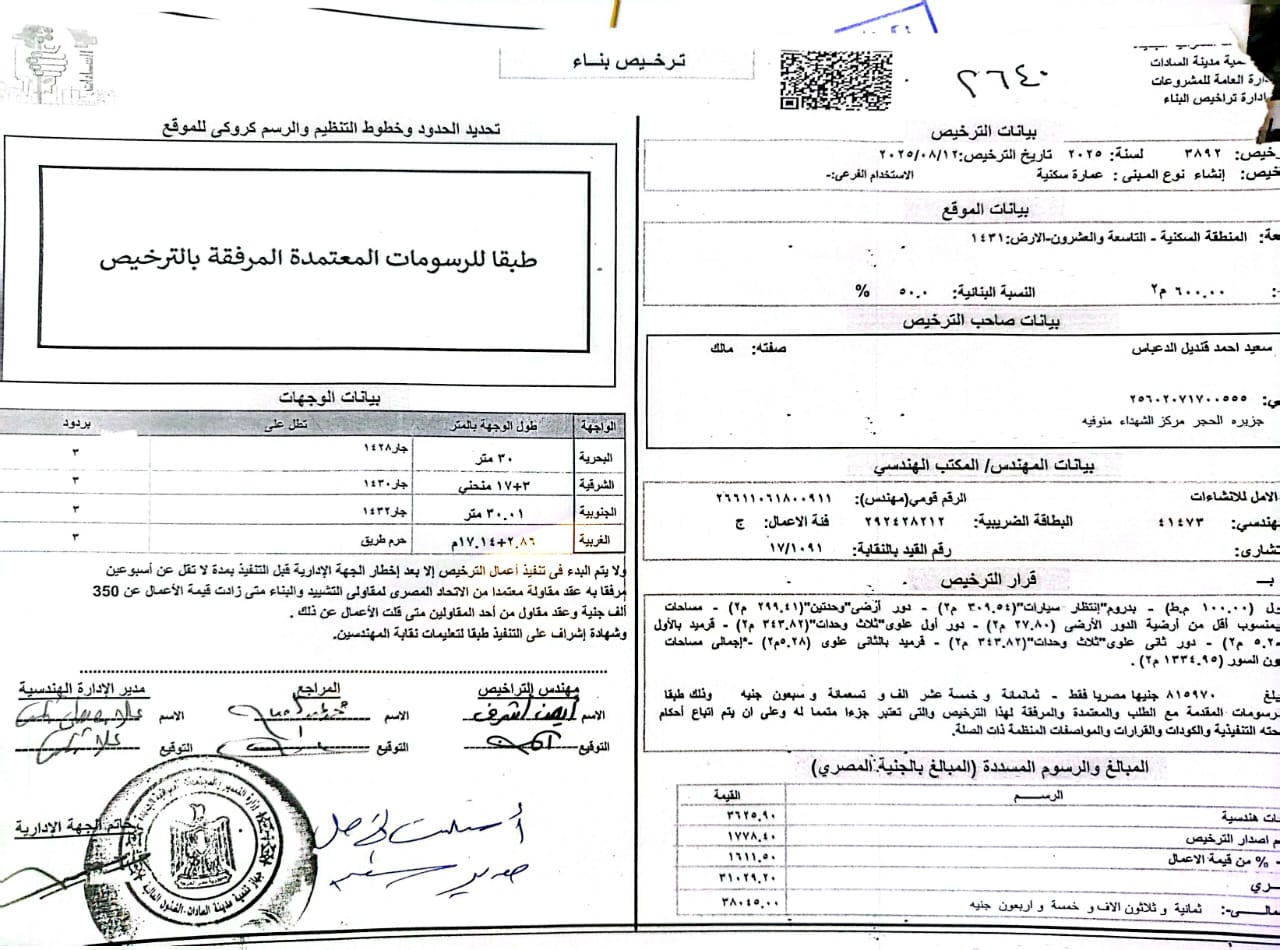 ترخيص بناء
٢٦٤٠
مية مدينة السادات
دارة العامة للمشروعات
دارة تراخيص البناء
بيانات الترخيص
رخيص: ٣٨٩٢ لسنة: ٢٠٢٥ تاريخ الترخيص:٢٠٢٥/٠٨/١٢
خيص: إنشاء نوع المبنى : عمارة سكنية الاستخدام الفرعى:-
بيانات الموقع
عة: المنطقة السكنية - التاسعة والعشرون-الارض:١٤٣١
: ٦٠٠.٠٠ م٢ النسبة البنائية: ٥٠.٠ %
بيانات صاحب الترخيص
سعيد احمد قنديل الدعباس صفته: مالك
ي: ٢٥٦٠٢٠٧١٧٠٠٥٥٥
جزيره الحجر مركز الشهداء منوفيه
بيانات المهندس/ المكتب الهندسي
الامل للانشاءات الرقم قومي(مهندس): ٢٦٦١١٠٦١٨٠٠٩١١
هندسي: ٤١٤٧٣ البطاقة الضريبية: ٢٩٢٤٢٨٢١٢ فئة الاعمال: ج
تشارى: رقم القيد بالنقابة: ١٧/١٠٩١
بــ قرار الترخيص
ول (١٠٠.٠٠ م.ط) - بدروم"إنتظار سيارات"(٣٠٩.٥٤ م٢) - دور أرضى"وحدتين"(٢٩٩.٤١ م٢) - مساحات
بمنسوب أقل من أرضية الدور الأرضى (٢٧.٨٠ م٢) - دور أول علوى"ثلاث وحدات"(٣٤٣.٨٢ م٢) - قرميد بالأول
٥.٢٠ م٢) - دور ثانى علوى"ثلاث وحدات"(٣٤٣.٨٢ م٢) - قرميد بالثانى علوى (٥.٢٨م٢) -"إجمالى مساحات
ون السور (١٣٣٤.٩٥ م٢) .
بلغ ٨١٥٩٧٠ جنيها مصريا فقط - ثمانمائة و خمسة عشر الف و تسعمائة و سبعون جنيه وذلك طبقا
رسومات المقدمة مع الطلب والمعتمدة والمرفقة لهذا الترخيص والتى تعتبر جزءا متمما له وعلى ان يتم اتباع أحكام
حته التنفيذية والكودات والقرارات والمواصفات المنظمة ذات الصلة.
المبالغ والرسوم المسددة (المبالغ بالجنية المصري)
الرســـم القيمة
ات هندسية ٣٦٢٥.٩٠
م اصدار الترخيص ١٧٧٨.٤٠
- % من قيمة الاعمال ١٦١١.٥٠
ري ٣١٠٢٩.٢٠
مالى-: ثمانية و ثلاثون الاف و خمسة و اربعون جنيه ٣٨٠٤٥.٠٠
السادات
تحديد الحدود وخطوط التنظيم والرسم كروكى للموقع
طبقا للرسومات المعتمدة المرفقة بالترخيص
بيانات الوجهات
الواجهة طول الوجهة بالمتر تطل على بردود
البحرية ٣٠ متر جار١٤٢٨ ٣
الشرقية ١٧+٣ منحني جار١٤٣٠ ٣
الجنوبية ٣٠.٠١ متر جار١٤٣٢ ٣
الغربية ١٧.١٤+٢.٨٦م حرم طريق ٣
ولا يتم البدء فى تنفيذ أعمال الترخيص إلا بعد إخطار الجهة الإدارية قبل التنفيذ بمدة لا تقل عن أسبوعين
مرفقا به عقد مقاولة معتمدا من الاتحاد المصرى لمقاولى التشييد والبناء متى زادت قيمة الأعمال عن 350
ألف جنية وعقد مقاول من أحد المقاولين متى قلت الأعمال عن ذلك .
وشهادة إشراف على التنفيذ طبقا لتعليمات نقابة المهندسين.
مهندس التراخيص المراجع مدير الإدارة الهندسية
الاسم أيمن أشرف الاسم الاسم
التوقيع التوقيع التوقيع
خاتم الجهة الإدارية
جهاز تنمية مدينة السادات